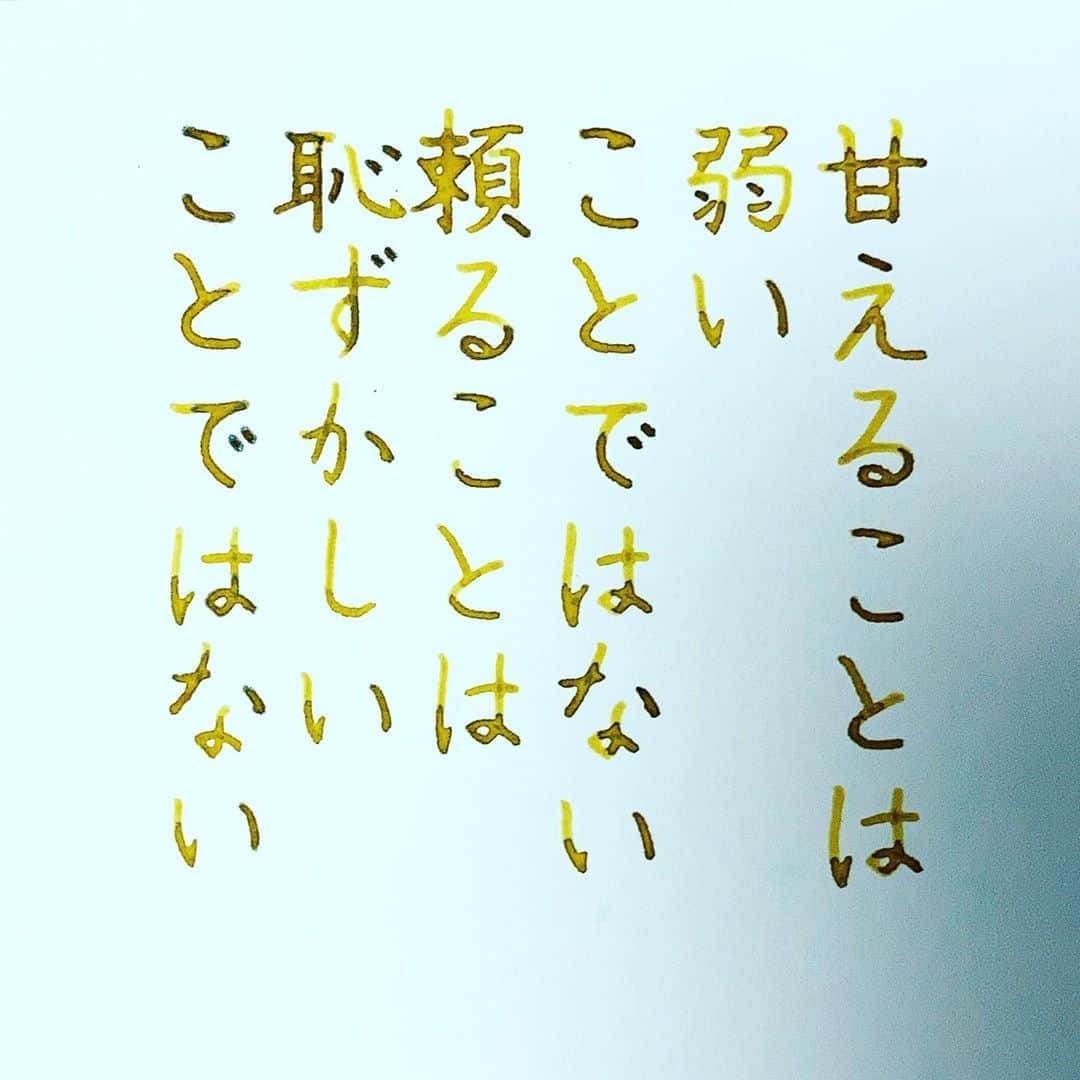 甘えることは
弱い
ことではない
頼ることは
恥ずかしい
ことではない